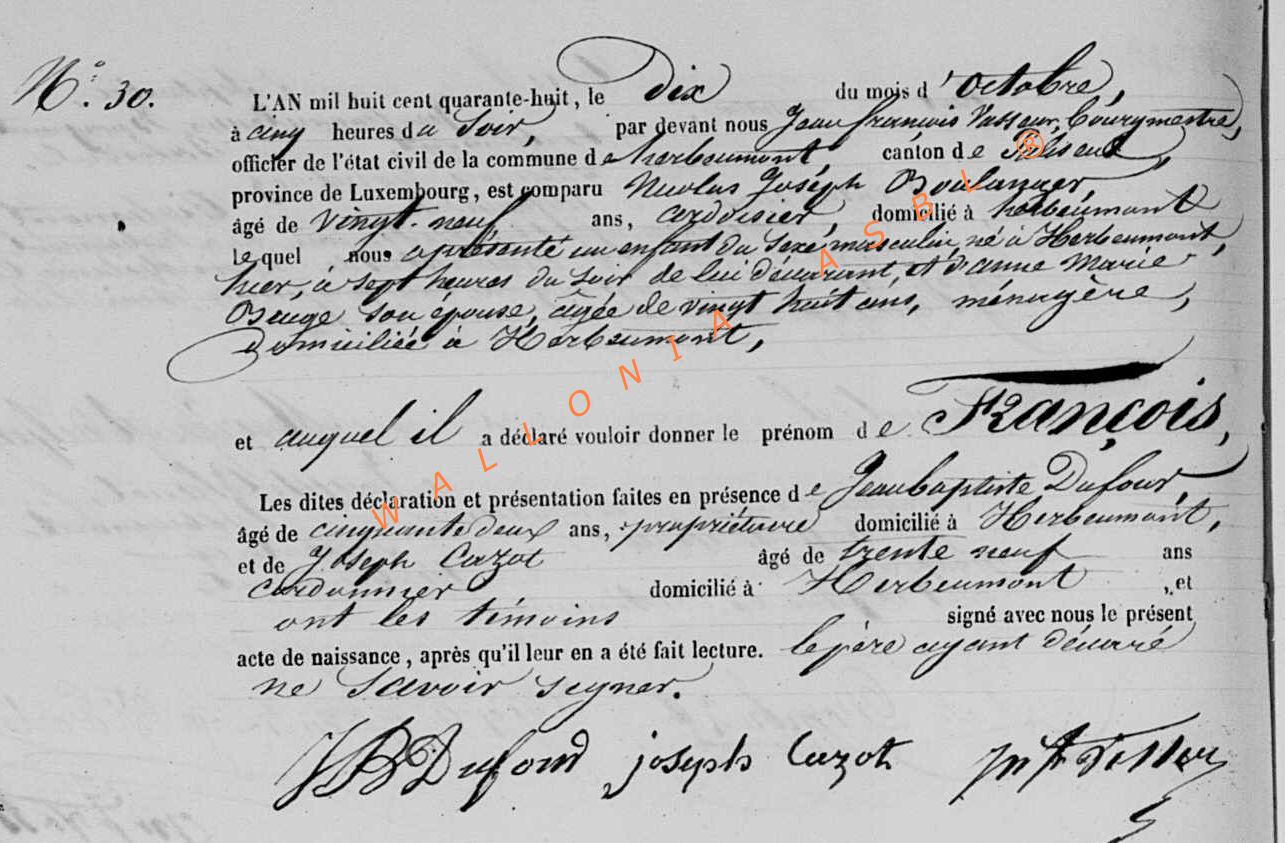 N.° 30.
L'AN mil huit cent quarante-huit, le Dix du mois d'octobre,
à cinq heures du Soir, par devant nous Jean françois Vasseur, Bourgmestre,
officier de l'état civil de la commune de herbeumont, canton de
province de Luxembourg, est comparu Nicolas Joséph Boulanger,
âgé de vingt-neuf ans, ardoisier, domicilié à herbeumont
lequel nous a présenté un enfant du sexe masculin, né à Herbeumont,
hier, à sept heures du soir de lui déclarant, et d'anne Marie
son épouse, âgée de vingt huit ans, ménagère,
Domiciliée à Herbeumont,
et auquel il a déclaré vouloir donner le prénom de François,
Les dites déclaration et présentation faites en présence de Jeanbaptiste Dufour,
âgé de cinquante deux ans, propriétaire domicilié à Herbeumont,
et de Joseph Cazot âgé de trente neuf ans
cordonnier domicilié à Herbeumont, et
ont les témoins signé avec nous le présent
acte de naissance, après qu'il leur en a été fait lecture. le père ayant déclaré
ne savoir signer.
JB Dufour joseph Cazot
WALLONIA ASBL ®